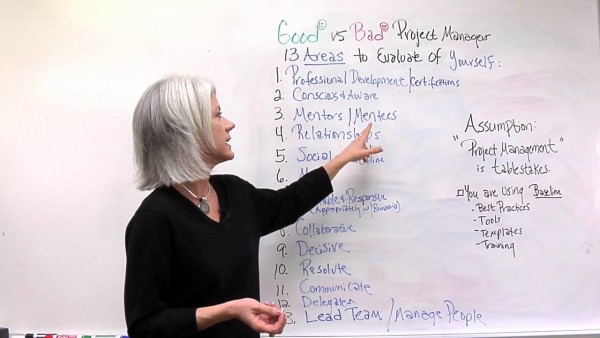 Good vs Bad Project Manager
13 Areas to Evaluate of Yourself:
1. Professional Development/Certifications
2. Conscious & Aware
3. Mentors / Mentees
4. Relationships
5. Social
6.
& Responsive
(Appropriately w/
8. Collaborative
9. Decisive
10. Resolute
11. Communicate
12. Delegates
3. Lead Team / Manage People
Assumption:
"Project Management"
is tablestakes.
You are using Baseline
- Best Practices
- Tools
- Templates
- Training